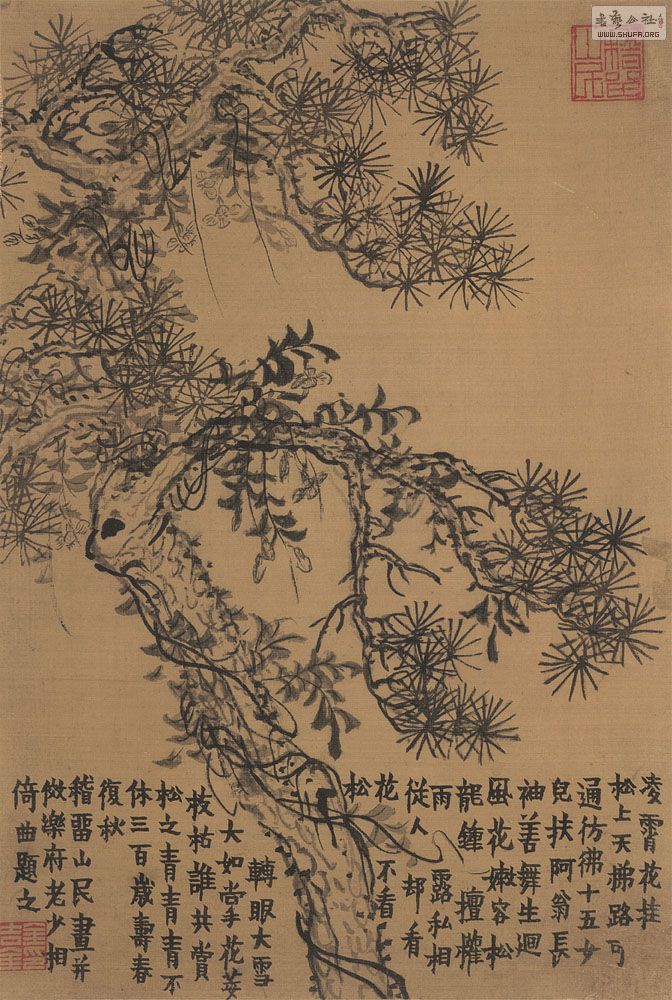 書藝公社
WWW.SHUFA.ORG
凌霄花挂
松上天梯路可
通彷彿十五女
兒扶阿翁長
袖善舞生迴
風花嫩容松
龍鍾擅權
雨露私相
從人却看
花不看
松
轉眼大雪
大如掌花萎
枝枯誰共賞
松之青青青不
休三百歲壽春
復秋
稽畱山民畫并
倣樂府老少相
倚曲題之